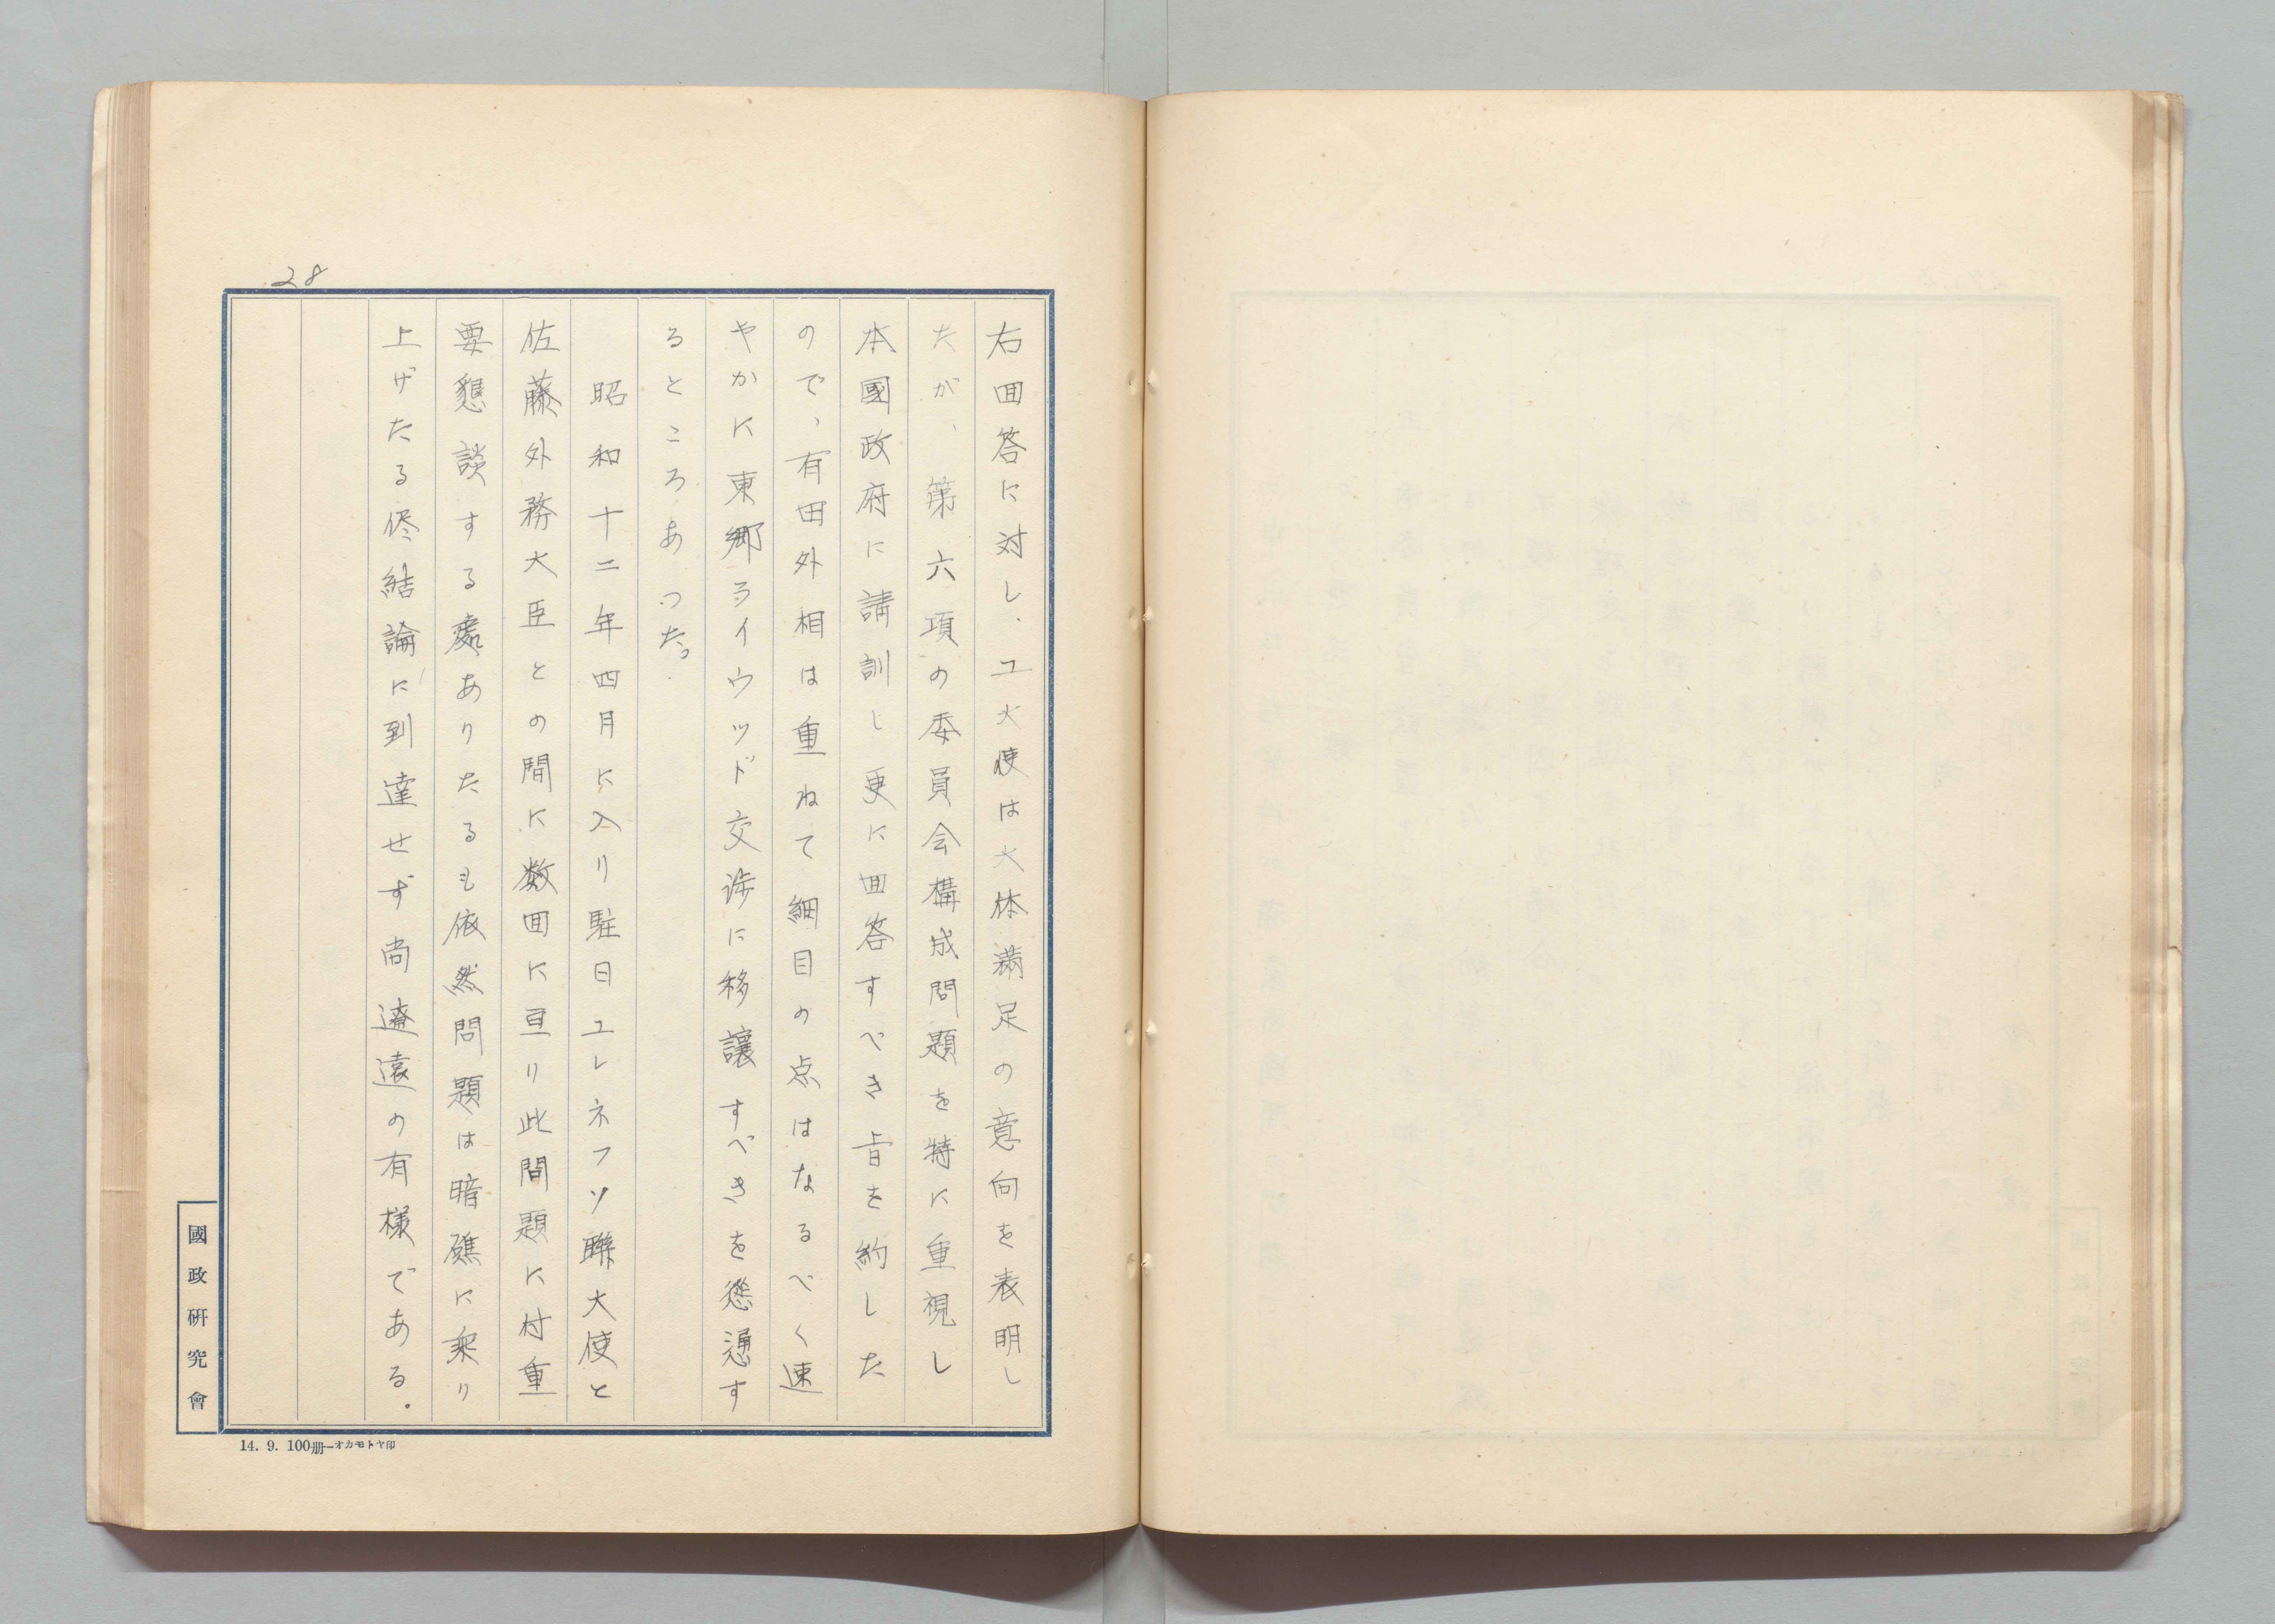 28
右回答に対し、ユ大使は大体満足の意向を表明し
たが、第六項の委員会構成問題を特に重視し
本國政府に請訓し更に回答すべき旨を約した
ので、有田外相は重ねて細目の点はなるべく速
やかに東郷ライウッド交渉に移譲すべきを慫慂す
るところあった。
昭和十二年四月に入り駐日ユレネフソ聯大使と
佐藤外務大臣との間に数回に亘り此間題に付重
要懇談する處ありたるも依然問題は暗礁に乗り
上げたる侭結論に到達せず尚遼遠の有様である。
國政研究會
14. 9. 100册—オカモトヤ印